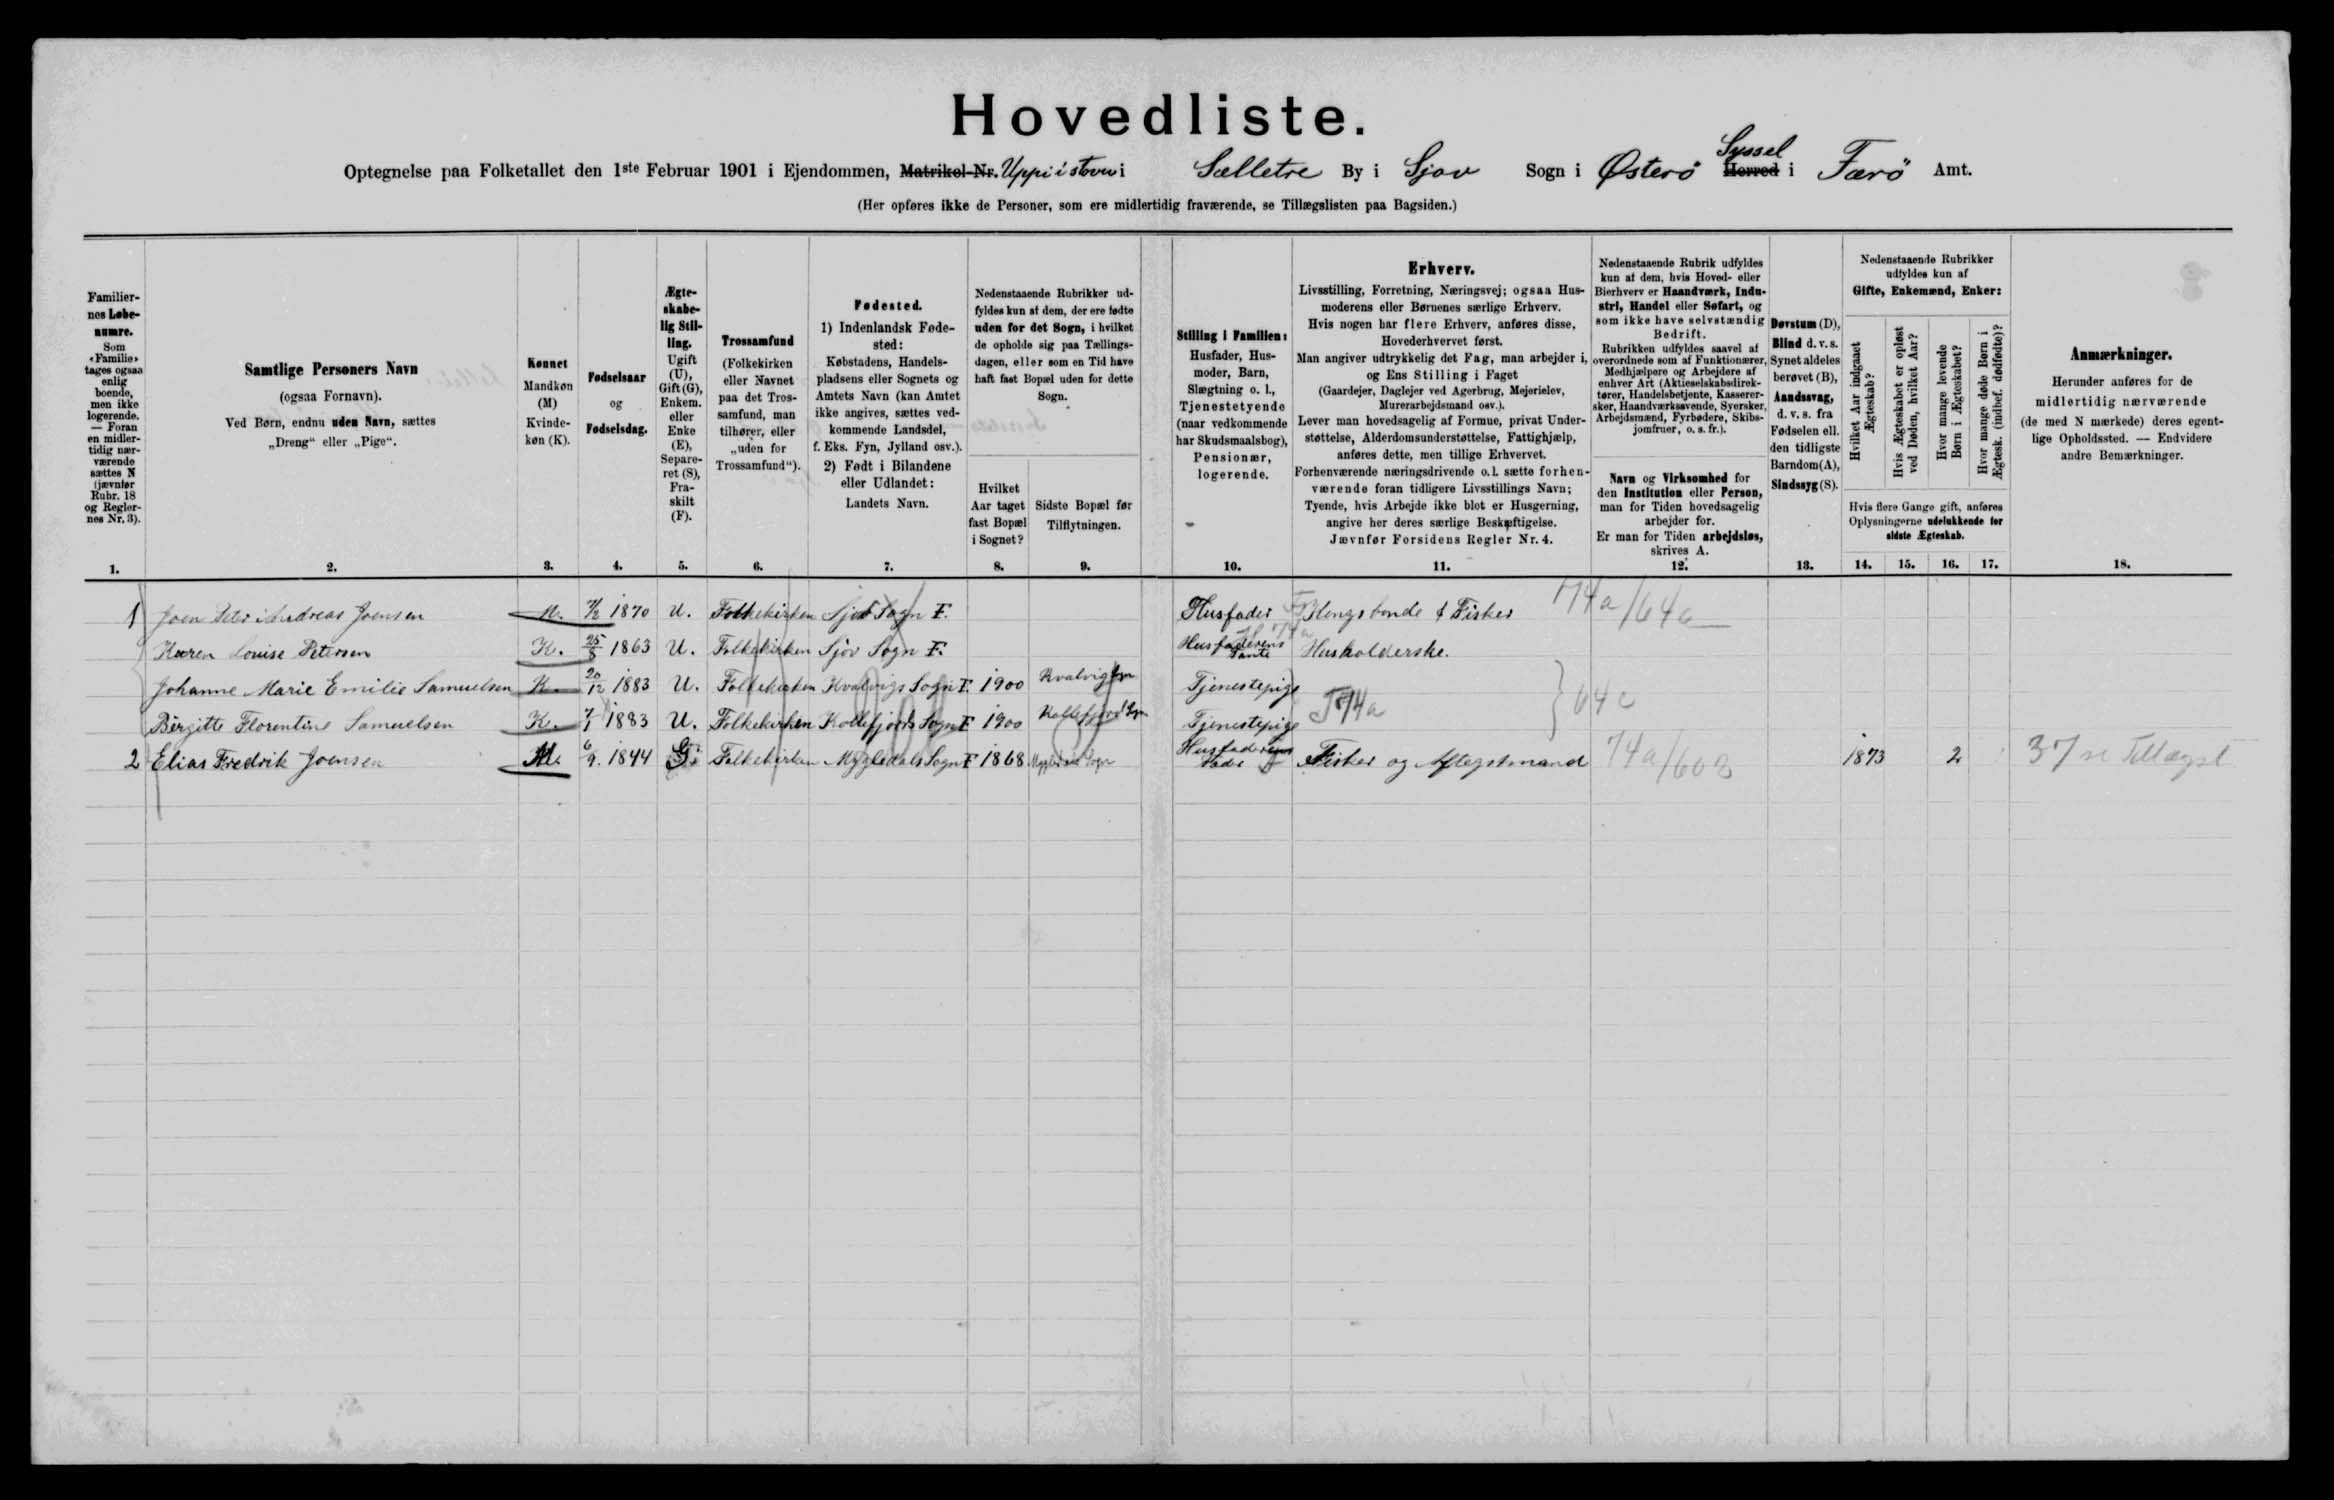 Hovedliste.
Optegnelse paa Folketallet den 1ste Februar 1901 i Ejendommen, Matrikel-Nr. Uppi i stovu i Selletre By i Sjov Sogn i Østerö Herred Syssel i Færö Amt.
(Her opføres ikke de Personer, som ere midlertidig fraværende, se Tillægslisten paa Bagsiden.)
Familiernes Løbenumre.
Som «Familie» tages ogsaa enlig boende, men ikke logerende. — Foran en midlertidig nærværende sættes N (jævnfør Rubr. 18 og Reglernes Nr. 3).
1.
Samtlige Personers Navn
(ogsaa Fornavn).
Ved Børn, endnu uden Navn, sættes
„Dreng“ eller „Pige“.
2.
Kønnet
Mandkøn (M)
Kvindekøn (K).
3.
Fødselsaar
og
Fødselsdag.
4.
Ægteskabelig Stilling.
Ugift (U), Gift (G), Enkem. eller Enke (E), Separeret (S), Fraskilt (F).
5.
Trossamfund
(Folkekirken eller Navnet paa det Trossamfund, man tilhører, eller „uden for Trossamfund“).
6.
Fødested.
1) Indenlandsk Fødested:
Købstadens, Handelspladsens eller Sognets og Amtets Navn (kan Amtet ikke angives, sættes vedkommende Landsdel, f. Eks. Fyn, Jylland osv.).
2) Født i Bilandene eller Udlandet:
Landets Navn.
7.
Nedenstaaende Rubrikker udfyldes kun af dem, der ere fødte uden for det Sogn, i hvilket de opholde sig paa Tællingsdagen, eller som en Tid have haft fast Bopæl uden for dette Sogn.
Hvilket Aar taget fast Bopæl i Sognet?
8.
Sidste Bopæl før Tilflytningen.
9.
Stilling i Familien:
Husfader, Husmoder, Barn, Slægtning o. l., Tjenestetyende (naar vedkommende har Skudsmaalsbog), Pensionær, logerende.
10.
Erhverv.
Livsstilling, Forretning, Næringsvej; ogsaa Husmoderens eller Børnenes særlige Erhverv.
Hvis nogen har flere Erhverv, anføres disse, Hovederhvervet først.
Man angiver udtrykkelig det Fag, man arbejder i, og Ens Stilling i Faget
(Gaardejer, Daglejer ved Agerbrug, Mejerielev, Murerarbejdsmand osv.).
Lever man hovedsagelig af Formue, privat Understøttelse, Alderdomsunderstøttelse, Fattighjælp, anføres dette, men tillige Erhvervet.
Forhenværende næringsdrivende o. l. sætte forhenværende foran tidligere Livsstillings Navn;
Tyende, hvis Arbejde ikke blot er Husgerning, angive her deres særlige Beskæftigelse.
Jævnfør Forsidens Regler Nr. 4.
11.
Nedenstaaende Rubrik udfyldes kun af dem, hvis Hoved- eller Bierhverv er Haandværk, Industri, Handel eller Søfart, og som ikke have selvstændig Bedrift.
Rubrikken udfyldes saavel af overordnede som af Funktionærer, Medhjælpere og Arbejdere af enhver Art (Aktieselskabsdirektører, Handelsbetjente, Kasserersker, Haandværkssvende, Syersker, Arbejdsmænd, Fyrbødere, Skibsjomfruer, o. s. fr.).
Navn og Virksomhed for den Institution eller Person, man for Tiden hovedsagelig arbejder for.
Er man for Tiden arbejdsløs, skrives A.
12.
Døvstum (D), Blind d. v. s. Synet aldeles berøvet (B), Aandssvag, d. v. s. fra Fødselen ell. den tidligste Barndom (A), Sindssyg (S).
13.
Nedenstaaende Rubrikker udfyldes kun af Gifte, Enkemænd, Enker:
Hvilket Aar indgaaet Ægteskab?
Hvis Ægteskabet er opløst ved Døden, hvilket Aar?
Hvor mange levende Børn i Ægteskabet?
Hvor mange døde Børn i Ægtesk. (indbef. dødfødte)?
Hvis flere Gange gift, anføres Oplysningerne udelukkende for sidste Ægteskab.
14. 15. 16. 17.
Anmærkninger.
Herunder anføres for de midlertidig nærværende (de med N mærkede) deres egentlige Opholdssted. — Endvidere andre Bemærkninger.
18.
1 Joen Peter Andreas Joensen M. 7/2 1870 U. Folkekirken Sjov Sogn F. Husfader Kongsbonde & Fisker 74a/64c
Karen Louise Petersen K. 25/8 1863 U. Folkekirken Sjov Sogn F. Husfaderens Tante Husholderske.
Johanne Marie Emilie Samuelsen K. 20/12 1883 U. Folkekirken Kvalvigs Sogn F. 1900 Kvalvig Sogn Tjenestepige
Birgitte Florentine Samuelsen K. 7/1 1883 U. Folkekirken Kollefjords Sogn F 1900 Kollefjord Sogn Tjenestepige T 74a 64c
2 Elias Fredrik Joensen M. 6/9. 1844 G. Folkekirken Mygledals Sogn F 1868 Mygledals Sogn Husfaderens Fader Fisker og Aftægtsmand 74a/603 1873 2 37 se Tillægsl